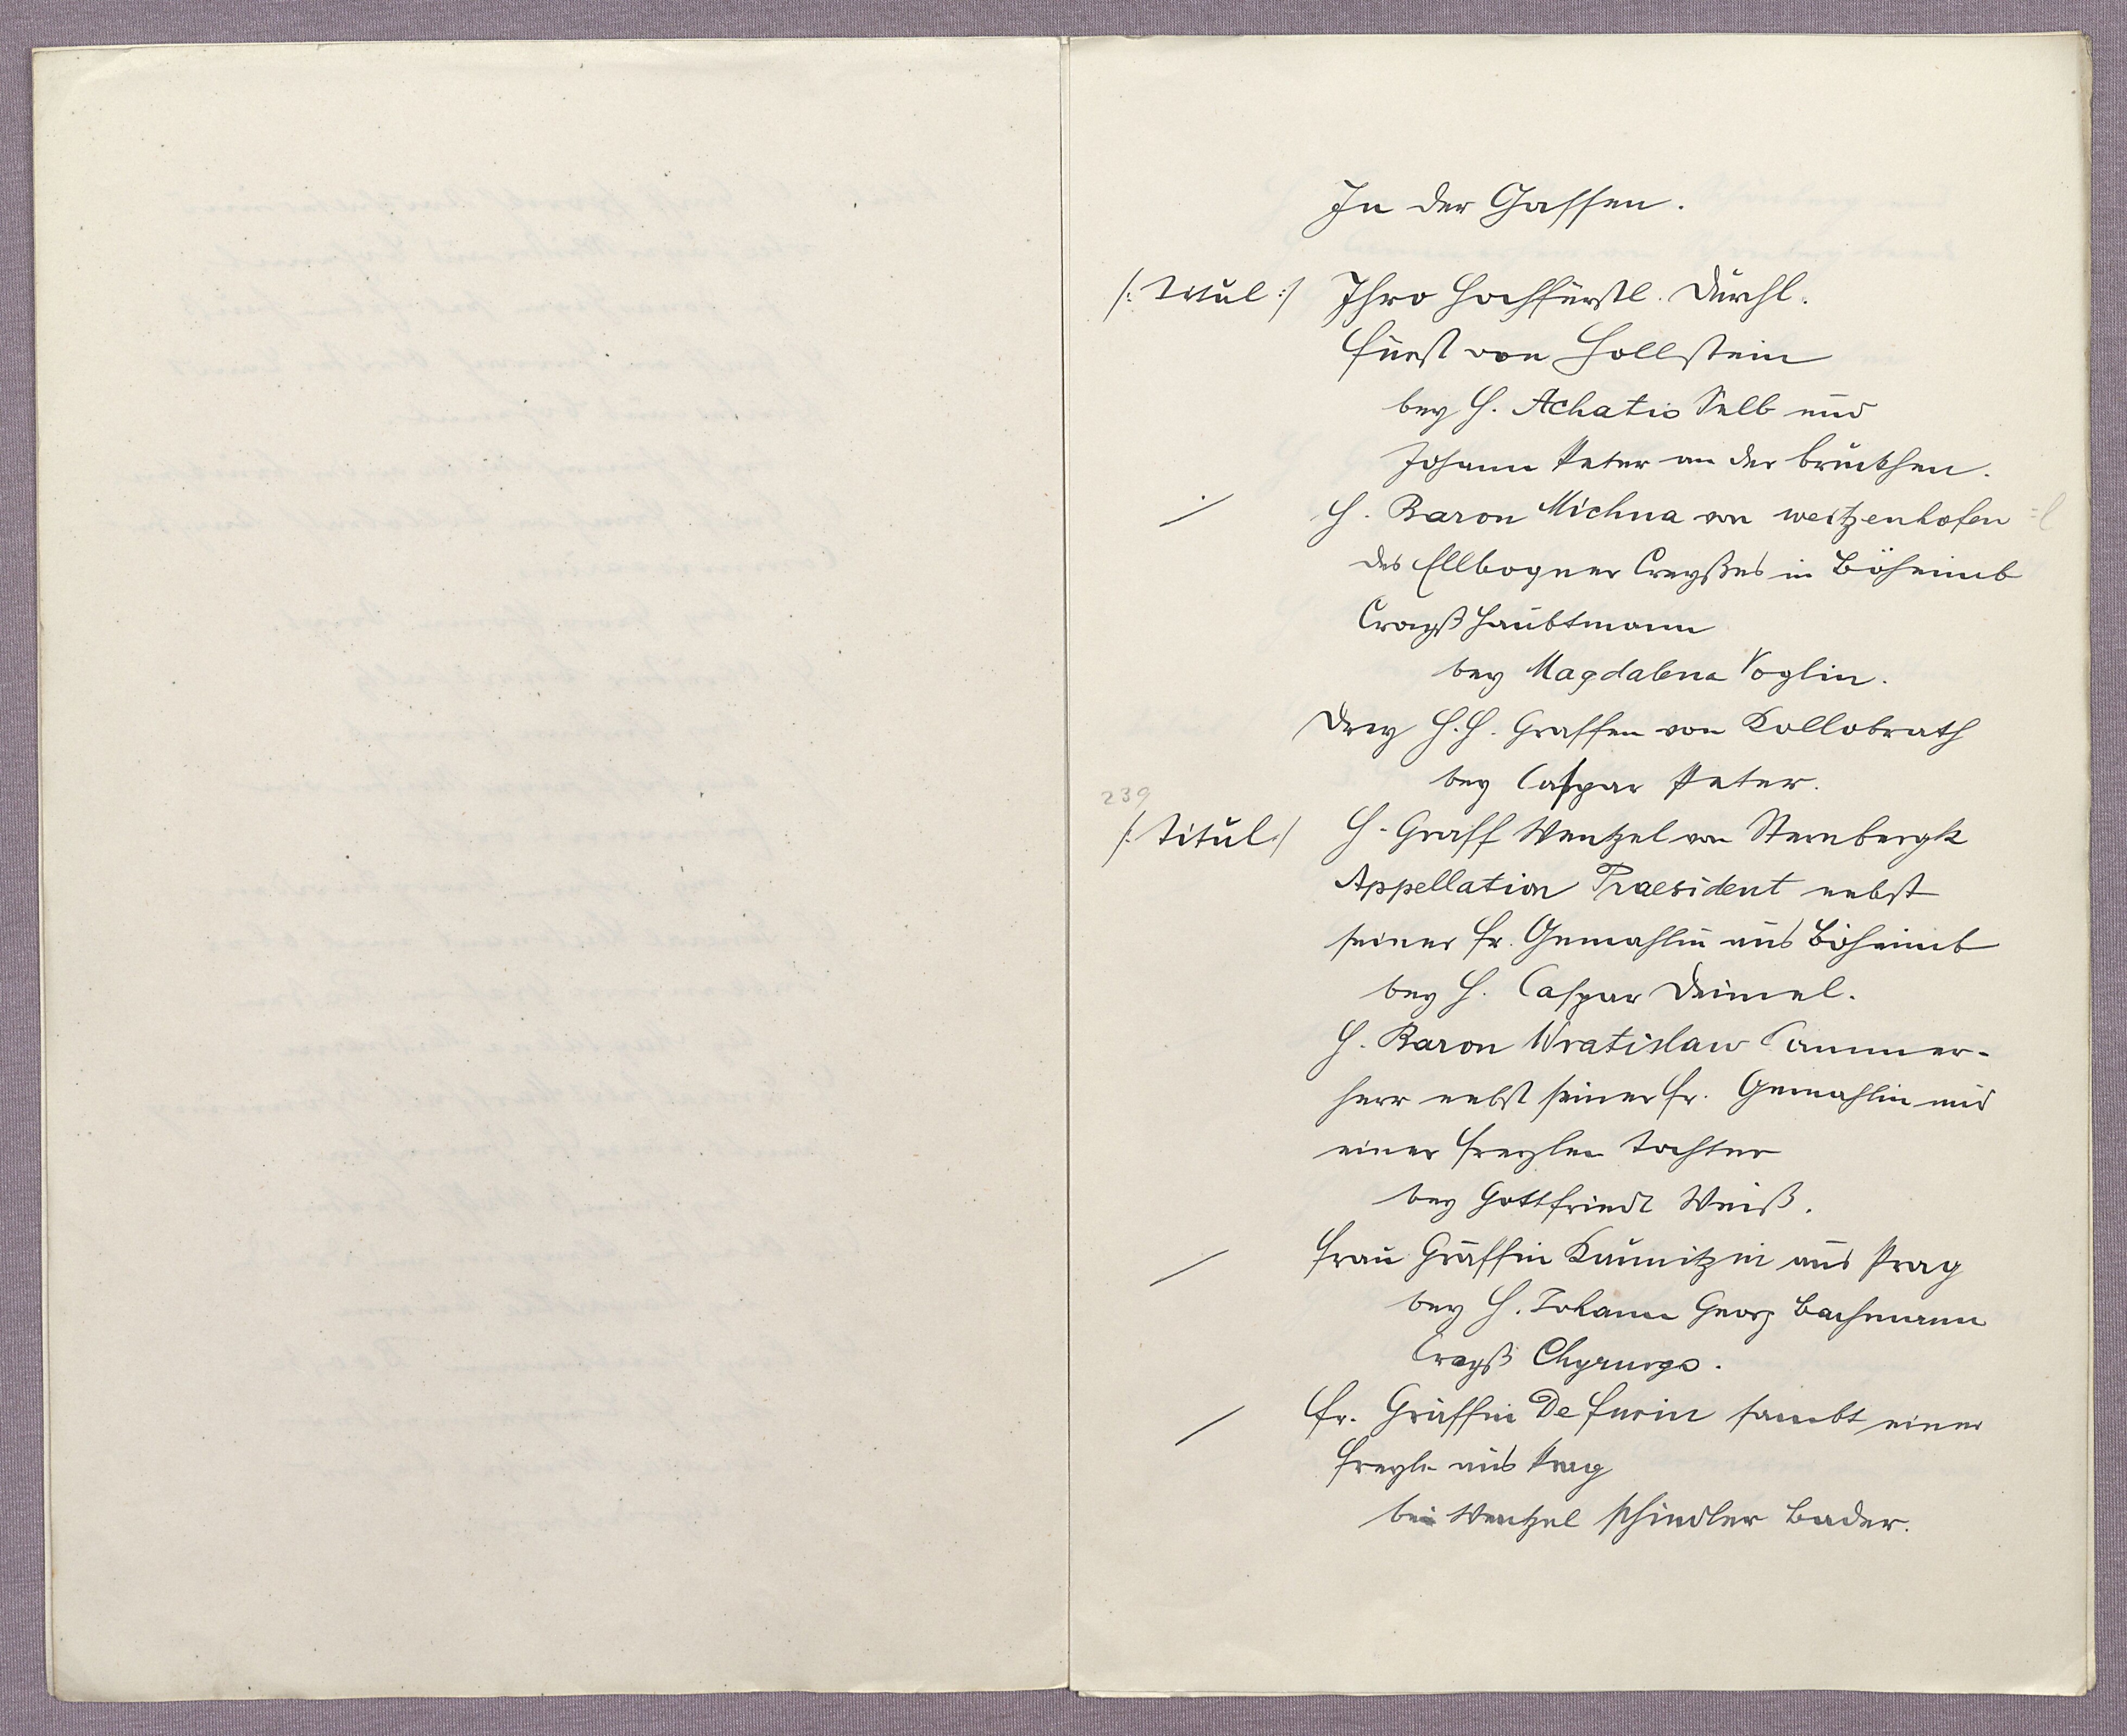 In der Gassen.
/: Titul :/ Ihro Hochfürstl. Dürchl.
Fürst von Hollstein
bey H. Achatio Selb und
Johann Peter an der brückhen.
H. Baron Michna von weitzenhofen
des Ellbogner Creyßes in Böheimb
Creyß Haubtmann
bey Magdalena Voglin.
Drey H.H. Graffen von Kollobrath
bey Caspar Peter.
239
/: Titul :/ H. Graff Wentzel von Sternbergk
Appellation Praesident nebst
seiner fr. Gemahlin aus Böheimb
bey H. Caspar Deimel.
H. Baron Wratislaw Cammer-
herr nebst seiner fr. Gemahlin und
einer freylen Tochter
bey Gottfriedt Weiß.
Frau Gräffin Kaunitzin aus Prag
bey H. Johann Georg Bachmann
Creyß Chyrurgo.
Fr. Gräffin De sambt einer
Freyle aus Prag
bei Wentzel Schindler Bader.